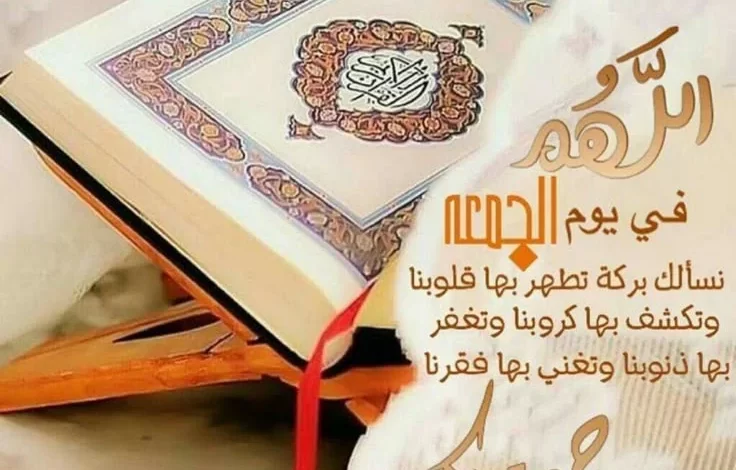 اللَّهُم
في يوم الجمعه
نسألك بركة تطهر بها قلوبنا
وتكشف بها كروبنا وتغفر
بها ذنوبنا وتغني بها فقرنا